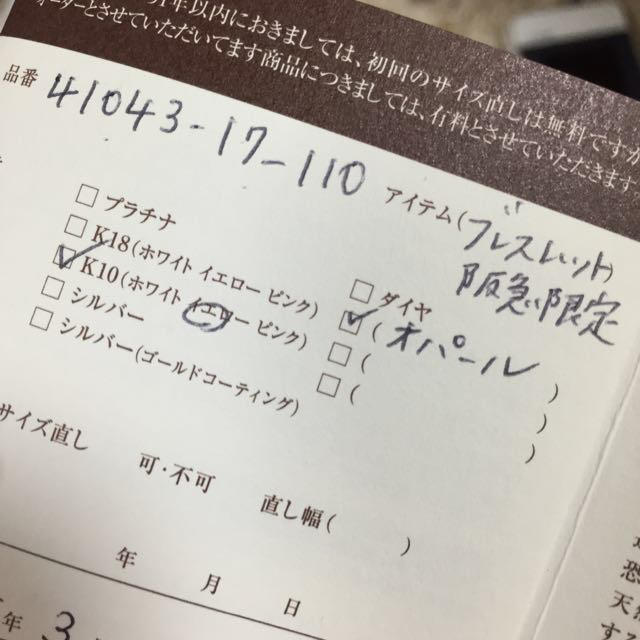 年以内におきましては、初回のサイズ直しは無料ですが
オーダーとさせていただいてます商品につきましては、有料とさせていただきます
品番 41043-17-110
アイテム(ブレスレット)
阪急限定
□ プラチナ
□ K18(ホワイト イエロー ピンク)
☑ K10(ホワイト イエロー ピンク)
□ シルバー
□ シルバー(ゴールドコーティング)
□ ダイヤ
☑ (オパール)
□ ( )
□ ( )
サイズ直し 可・不可 直し幅( )
年 月 日
年 3
恐
天
す